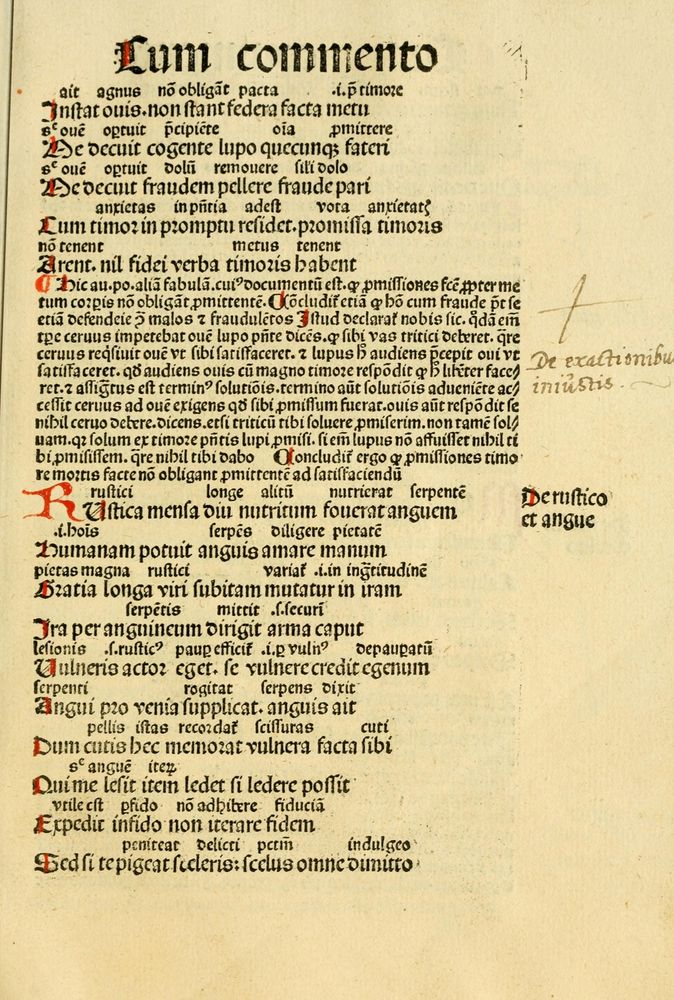 Cum commento
ait agnus nō obligāt pacta .i. p̄ timore
Instat ouis. non stant federa facta metu
sᶜ ouē oꝑtuit p̄cipiēte oīa ꝓmittere
Me decuit cogente lupo quecunqꝫ fateri
sᶜ ouē oꝑtuit dolū remouere sil'i dolo
Me decuit fraudem pellere fraude pari
anxietas in pn̄tia adest vota anxietatꝭ
Cum timor in promptu residet. promissa timoris
nō tenent metus tenent
Arent. nil fidei verba timoris habent
Hic au. po. aliā fabulā. cuiꝰ documentū est. ꝙ ꝓmissiones fcē ꝓpter me
tum corꝑis nō obligāt ꝓmittentē. Cōcludit etiā ꝙ hō cum fraude pōt se
etiā defendere ꝯ̄ malos ⁊ fraudulētos Istud declarat nobis sic. qđā em̄
tꝑe ceruus impetebat ouē lupo pn̄te dicēs. ꝙ sibi vas tritici deberet. qre
ceruus reqsiuit ouē vt sibi satisfaceret. ⁊ lupus h̄ audiens p̄cepit oui vt
satisfaceret. qđ audiens ouis cū magno timore respōdit ꝙ h̄ libēter face/
ret. ⁊ assigtus est terminꝰ solutiōis. termino aūt solutiōis adueniēte ac/
cessit ceruus ad ouē exigens qđ sibi ꝓmissum fuerat. ouis aūt respōdit se
nihil ceruo debere. dicens. etsi triticū tibi soluere ꝓmiserim. non tamē sol/
uam. qꝛ solum ex timore pn̄tis lupi ꝓmisi. si em̄ lupus nō affuisset nihil ti
bi ꝓmisissem. qre nihil tibi dabo Concludit ergo ꝙ ꝓmissiones timo
re mortis facte nō obligant ꝓmittentē ad satisfaciendū
De exactionibus
iniustis.
rustici longe alitū nutrierat serpentē
RUstica mensa diu nutritum fouerat anguem
De rustico
et angue
.i. hoīs serpēs diligere pietatē
Humanam potuit anguis amare manum
pietas magna rustici variat .i. in ingtitudinē
Gratia longa viri subitam mutatur in iram
serpētis mittit .s. securī
Ira per anguineum dirigit arma caput
lesionis .s. rusticꝰ pauꝑ efficit .i. ꝑ vulnꝰ depauꝑatū
Uulneris actor eget. se vulnere credit egenum
serpenti rogitat serpens dixit
Angui pro venia supplicat. anguis ait
pellis istas recordat scissuras cuti
Dum cutis hec memorat vulnera facta sibi
sᶜ anguē iteꝝ
Qui me lesit item ledet si ledere possit
vtile est ꝑfido nō adhibere fiduciā
Expedit infido non iterare fidem
peniteat delicti pctm̄ indulgeo
Sed si te pigeat sceleris: scelus omne dimitto